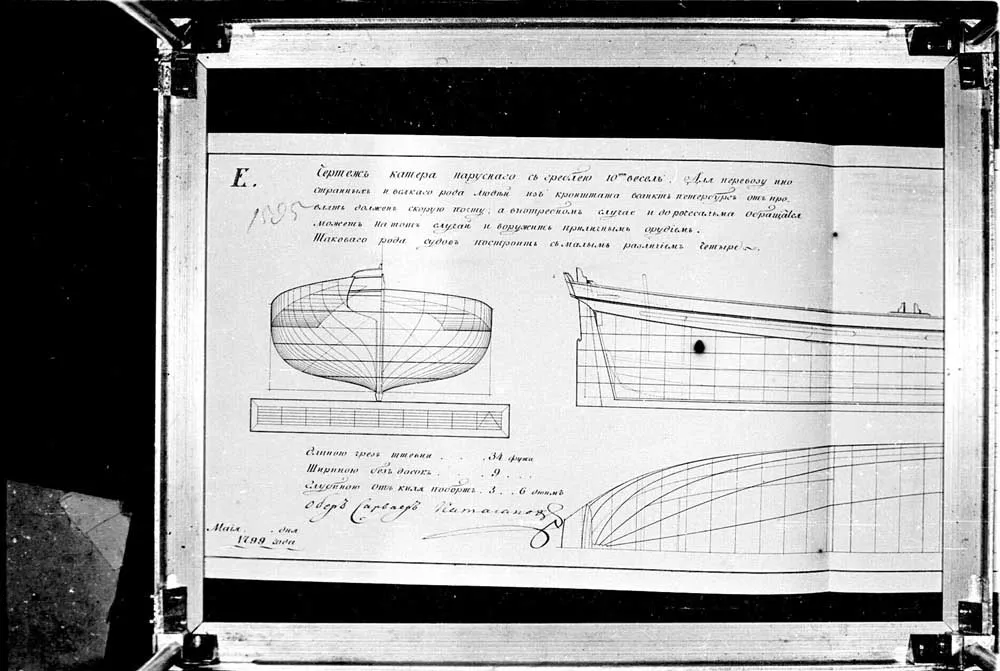 E.
Чертежъ катера паруснаго съ греблею 10ю веселъ; Для перевозу ино
странныхъ и всякаго рода людей изъ кронштата въ санктъ петербургъ отъ про
влять долженъ скорую посту; а в случае и до россалма обращался
можетъ на тотъ случай и воружить приличнымъ орудиемъ.
Таковаго рода судовъ построить съ малымъ различиемъ четыре
1595
Длиною чрезъ штевни . . . 34 фута
Шириною безъ досокъ . . . 9 . . .
Глубиною отъ киля по бортъ . 3 . . 6 дюймъ
Оберъ Сарваеръ Катасановъ
Маiя . . дня
1799 года